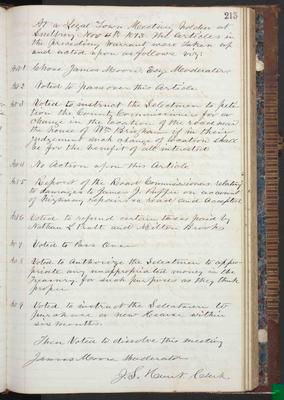 215
At a Legal Town Meeting holden at
Sudbury Nov 4th 1873. All Articles in
the preceding Warrant were taken up
and acted upon as follows viz:
Art 1 Chose James Moore Esq Moderator
No 2 Voted to pass over this Article
No 3 Voted to instruct the Selectmen to peti-
tion the County Commissioners for a
change in the location of the Road near
the house of Wm Brigham if in their
judgement such change of location shall
be for the benefit of all interested
No 4 No Action upon this Article
No 5 Report of the Road Commissioners relating
to damages to James J. Puffer on account
of Highway repairs was read and Accepted
No 6 Voted to refund certain taxes paid by
Nathan L Pratt and Milton Brooks
No 7 Voted to Pass Over
No 8 Voted to Authorize the Selectmen to appro-
priate any unappropriated money in the
Treasury for such purposes as they think
proper
No 9 Voted to instruct the Selectmen to
purchase a new Hearse within
six months.
Then Voted to dissolve this meeting
James Moore Moderator
J. S. Hunt Clerk